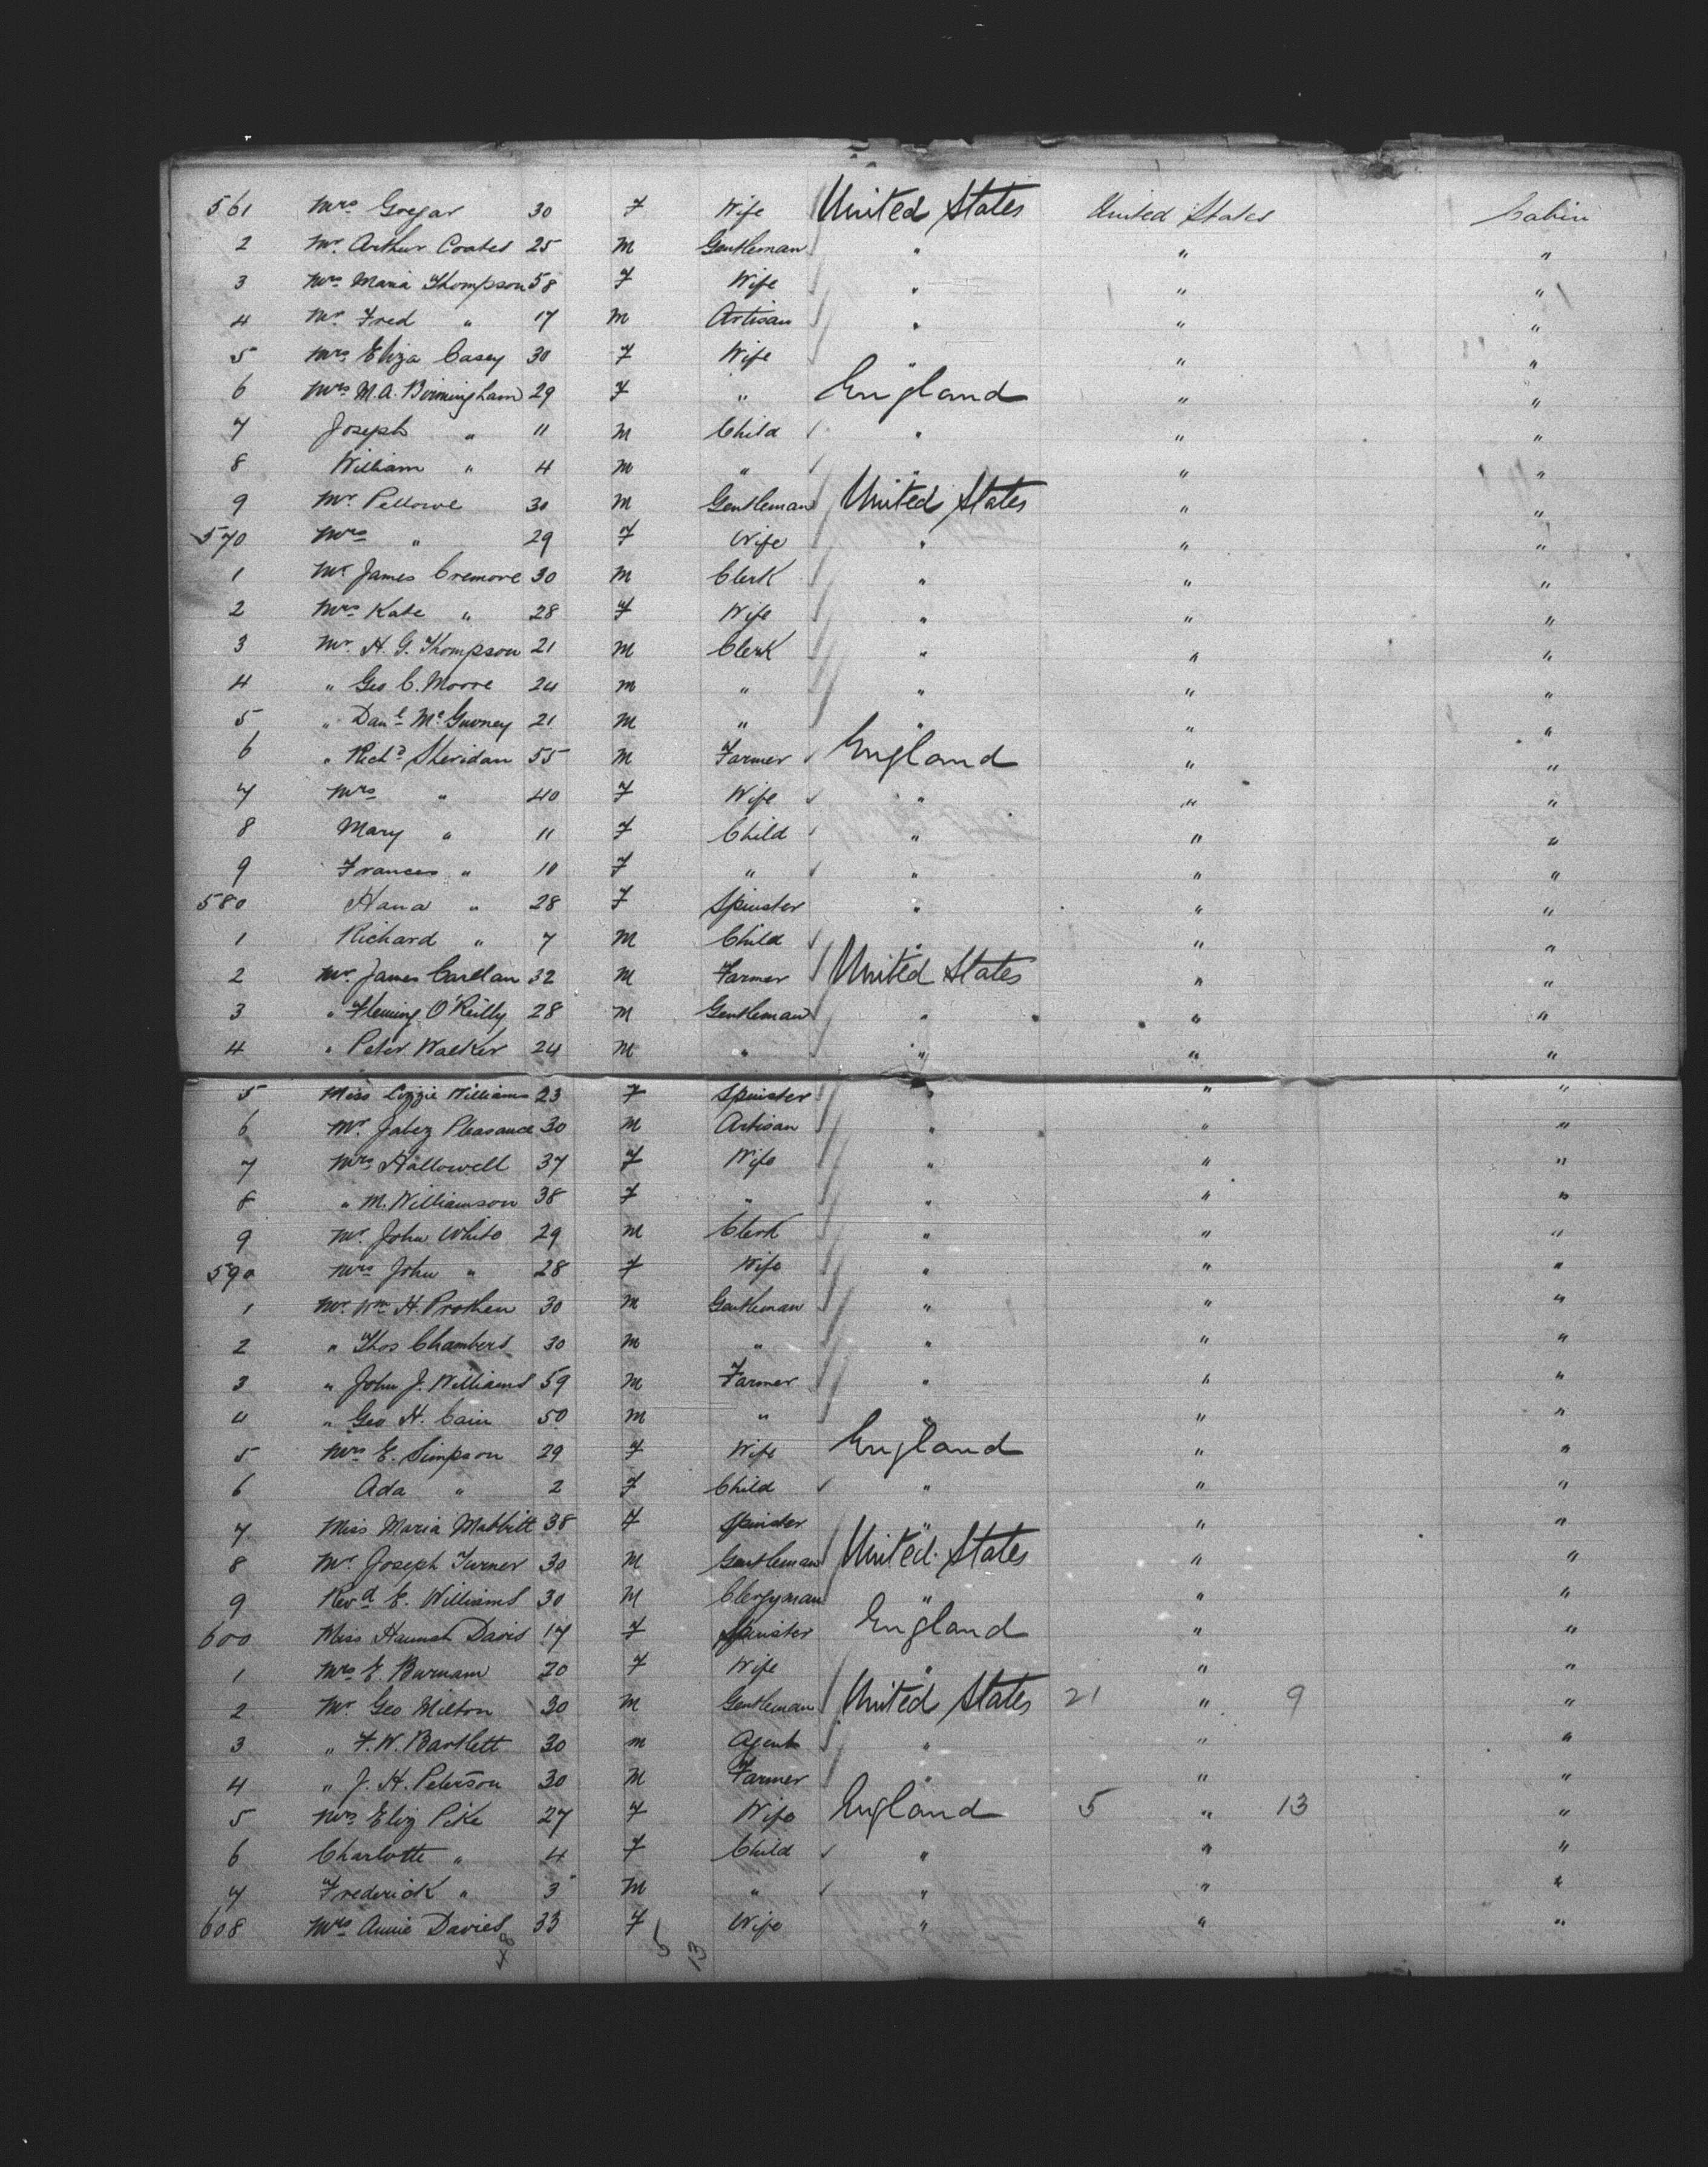 561 Mrs Gregar 30 F Wife United States United States Cabin
2 Mr. Arthur Coates 25 M Gentleman " " "
3 Mrs Maria Thompson 58 F Wife " " "
4 Mr. Fred " 17 M Artisan " " "
5 Mrs Eliza Casey 30 F Wife " " "
6 Mrs M. A. Birmingham 29 F " England " "
7 Joseph " 11 M Child " " "
8 William " 4 M " " " "
9 Mr. Pellowe 30 M Gentleman United States " "
570 Mrs " 29 F Wife " " "
1 Mr James Cremore 30 M Clerk " " "
2 Mrs Kate " 28 F Wife " " "
3 Mr. H. G. Thompson 21 M Clerk " " "
4 " Geo C. Moore 24 M " " " "
5 " Danl McGurney 21 M " " " "
6 " Richd Sheridan 55 M Farmer England " "
7 Mrs " 40 F Wife " " "
8 Mary " 11 F Child " " "
9 Frances " 10 F " " " "
580 Hana " 28 F Spinster " " "
1 Richard " 7 M Child " " "
2 Mr. James Carllan 32 M Farmer United States " "
3 " Fleming O'Reilly 28 M Gentleman " " "
4 " Peter Walker 24 M " " " "
5 Miss Lizzie Williams 23 F Spinster " " "
6 Mr. Jabez Pleasance 30 M Artisan " " "
7 Mrs Hallowell 37 F Wife " " "
8 " M. Williamson 38 F " " " "
9 Mr. John White 29 M Clerk " " "
590 Mrs John " 28 F Wife " " "
1 Mr. Wm H. Prothen 30 M Gentleman " " "
2 " Thos Chambers 30 M " " " "
3 " John J. Williams 59 M Farmer " " "
4 " Geo H. Cain 50 M " " " "
5 Mrs E. Simpson 29 F Wife England " "
6 Ada " 2 F Child " " "
7 Miss Maria Mabbitt 38 F Spinster " " "
8 Mr. Joseph Turner 30 M Gentleman United States " "
9 Revd E. Williams 30 M Clergyman " " "
600 Miss Hannah Davis 17 F Spinster England " "
1 Mrs E. Burnam 20 F Wife " " "
2 Mr Geo Milton 30 M Gentleman United States 21 " 9 "
3 " F. W. Bartlett 30 M Agent " " "
4 " J. H. Peterson 30 M Farmer " " "
5 Mrs Eliz Pike 27 F Wife England 5 " 13 "
6 Charlotte " 4 F Child " " "
7 Frederick " 3 M " " " "
608 Mrs Annie Davies 33 F Wife " " "
48 5 13